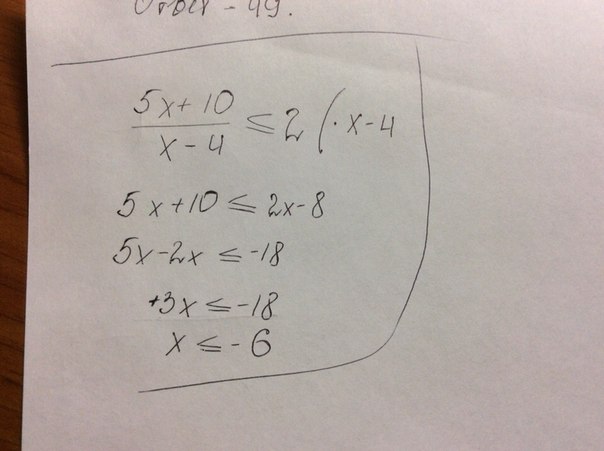 Ответ - 49.
5x+10 / x-4 ≤ 2 (· x-4
5x+10 ≤ 2x-8
5x-2x ≤ -18
+3x ≤ -18
x ≤ -6